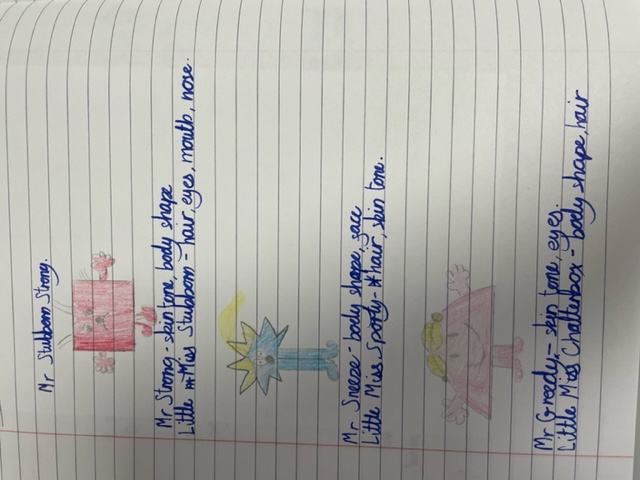 Mr Stubborn Strong.
Mr Strong - skin tone, body shape
Little Miss Stubborn - hair, eyes, mouth, nose.
Mr Sneeze - body shape, face
Little Miss Sporty - hair, skin tone.
Mr Greedy - skin tone, eyes.
Little Miss Chatterbox - body shape, hair